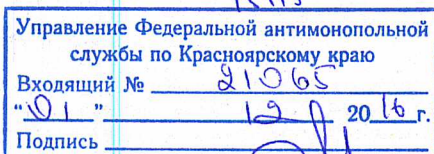 Управление Федеральной антимонопольной
службы по Красноярскому краю
Входящий № 21065
"01" 12 2016 г.
Подпись